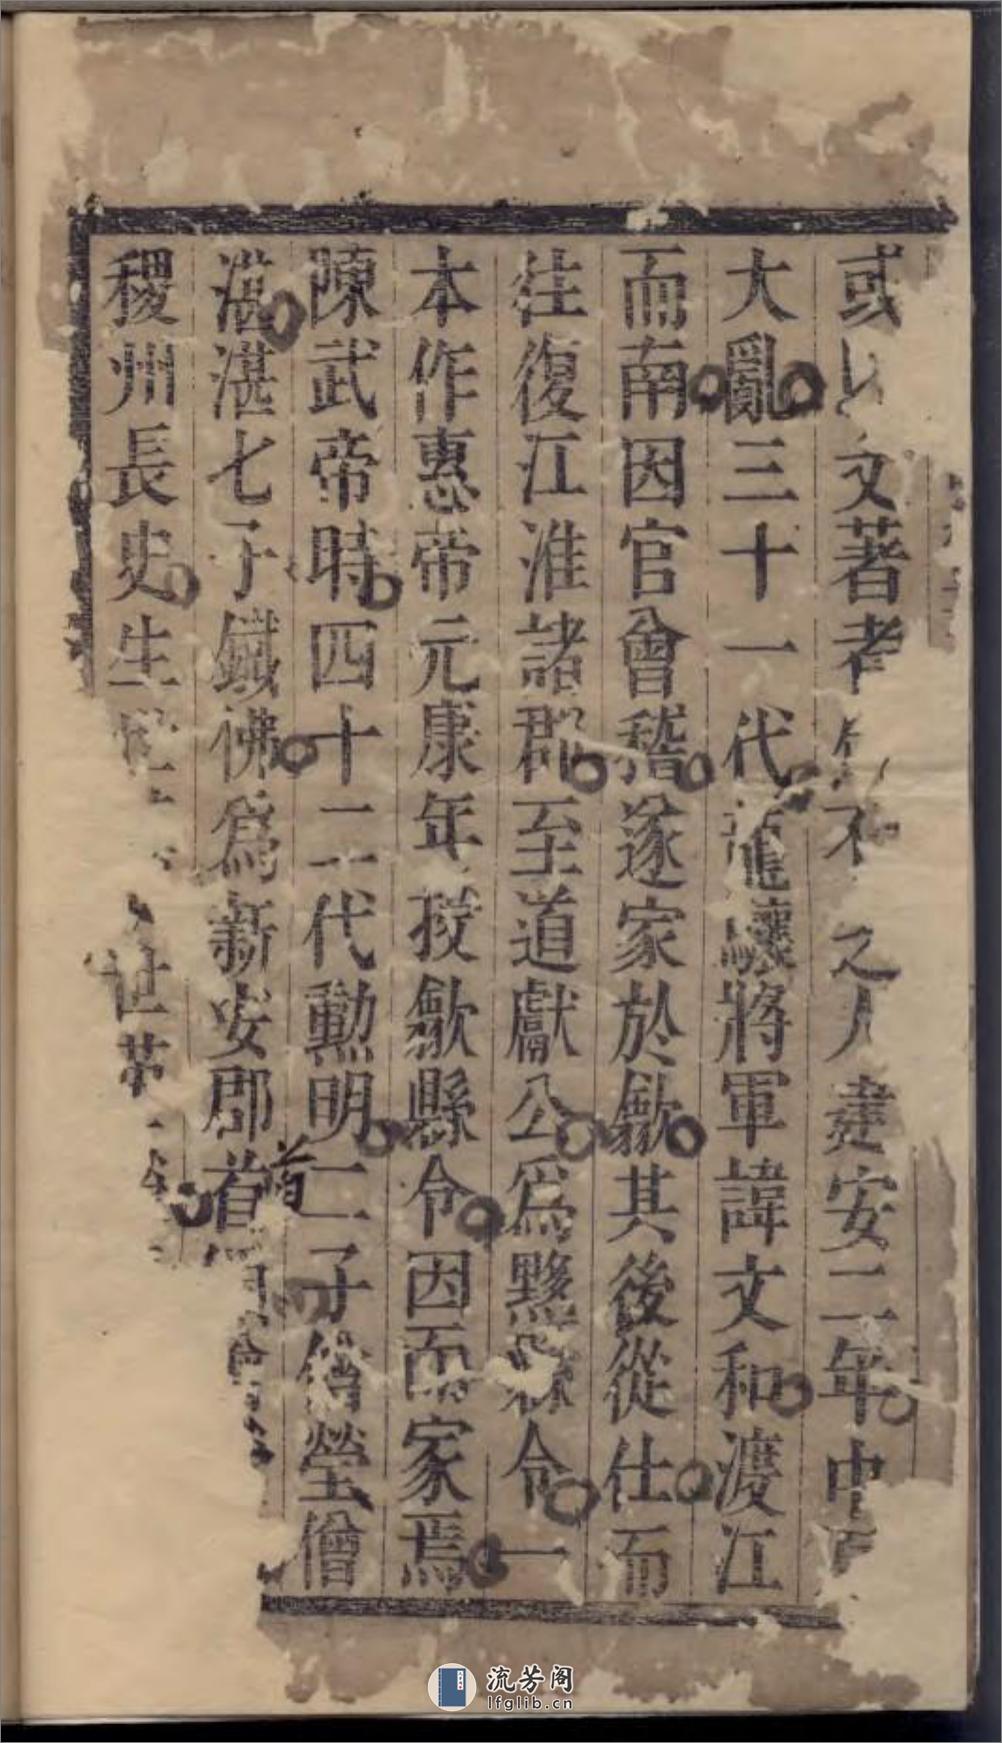 或以文著者不之人建安二年中
大亂三十一代龍驤將軍諱文和渡江
而南因官會稽遂家於歙其後從仕而
往復江淮諸郡至道獻公爲黟縣令一
本作惠帝元康年授歙縣令因而家焉
陳武帝時四十二代勳明二子僧瑩僧
湛湛七子鐵佛爲新安郡首
首
稷州長史生世華
流芳阁
lfglib.cn